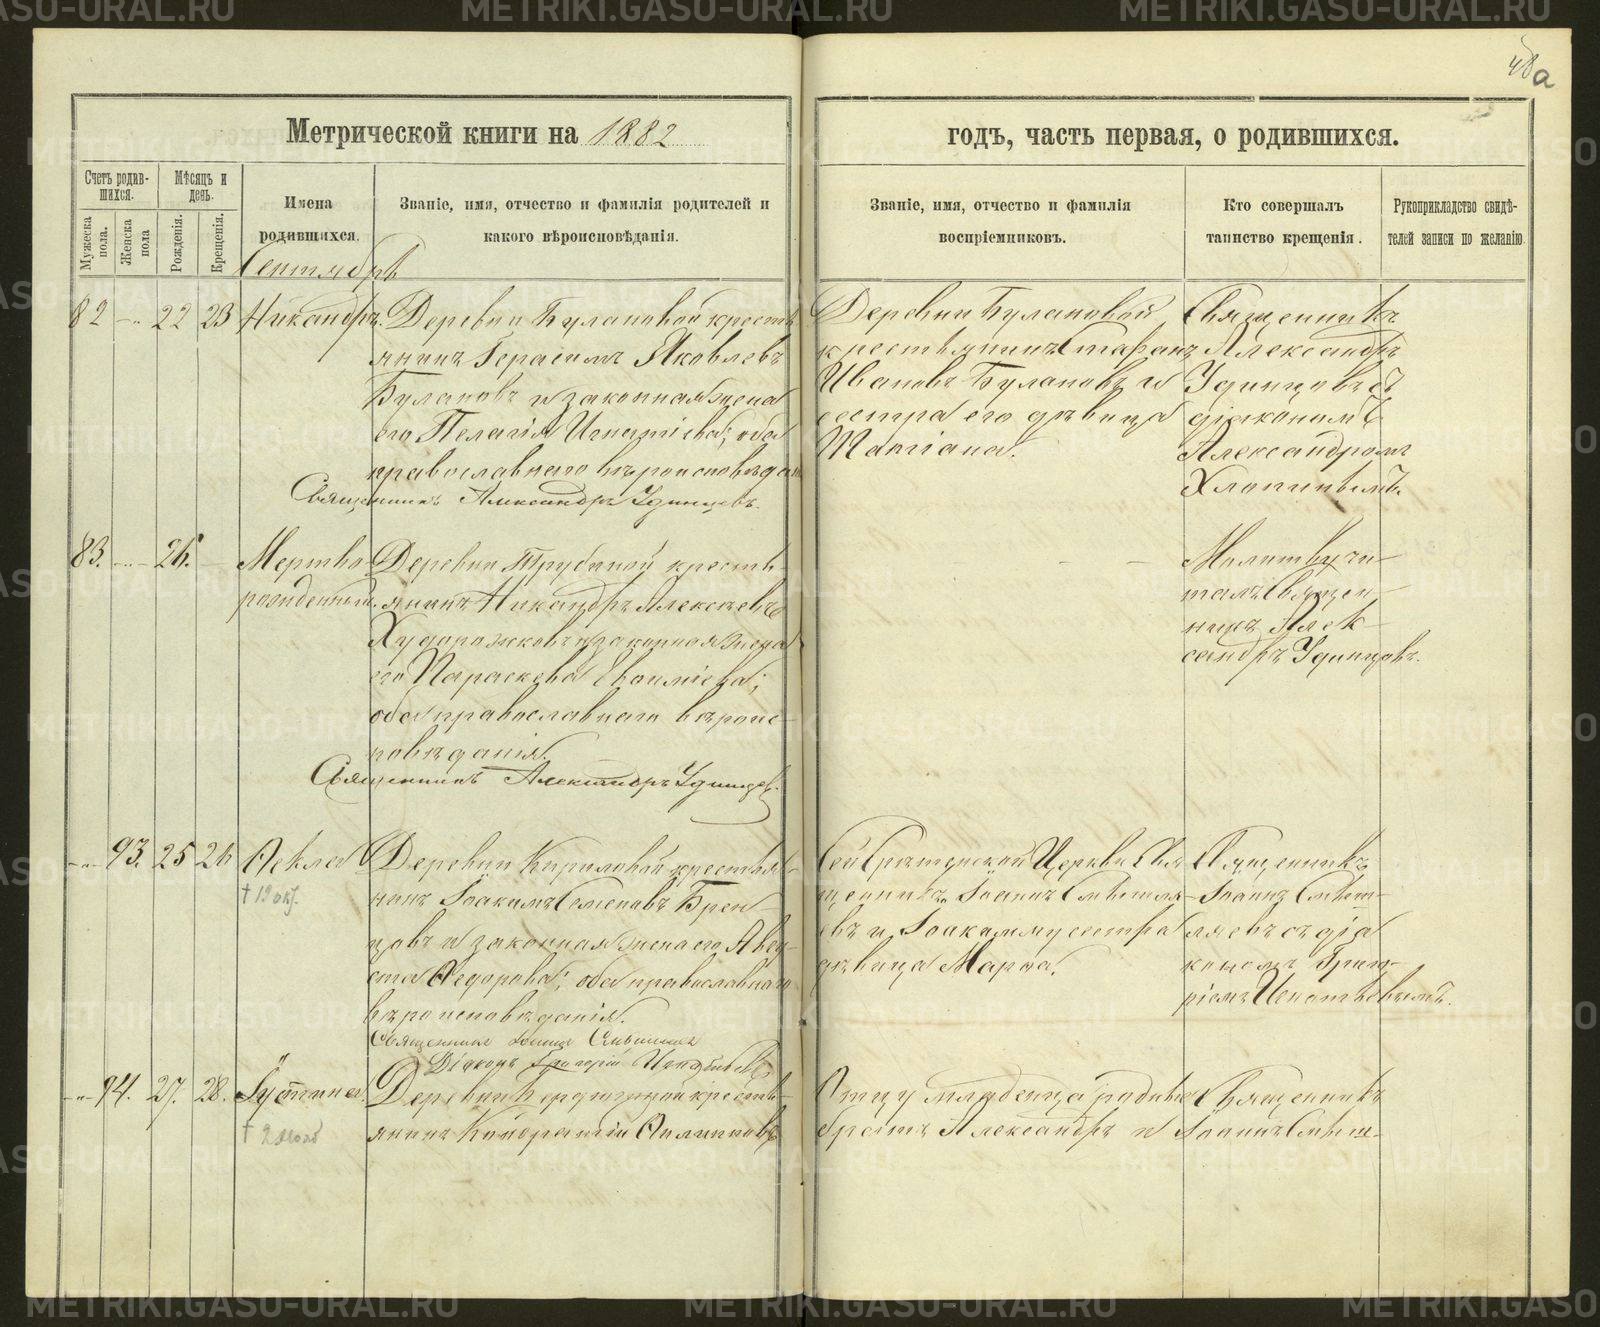 48 а
Метрической книги на 1882
годъ, часть первая, о родившихся.
Счетъ родив-
шихся.
Мужеска пола.
Женска пола
Мѣсяцъ и
день.
Рожденія.
Крещенія.
Имена
родившихся.
Званіе, имя, отчество и фамилія родителей и
какого вѣроисповѣданія.
Званіе, имя, отчество и фамилія
воспріемниковъ.
Кто совершалъ
таинство крещенія.
Рукоприкладство свидѣ-
телей записи по желанію.
Сентябрь
82 - 22 23 Никандръ.
Деревни Булановой кресть
янинъ Герасимъ Яковлевъ
Булановъ и законная жена
его Пелагія Игнатіева; оба
православнаго вѣроисповѣдан
Священникъ Александръ Удинцевъ.
Деревни Булановой
крестьянинъ Стефанъ
Ивановъ Булановъ и
сестра его дѣвица
Татіана.
Священникъ
Александръ
Удинцовъ съ
діакономъ
Александромъ
Хлопинымъ.
83. - 26. Мертво
рожденный.
Деревни Трубиной кресть
янинъ Никандръ Алексѣевъ
Худорожковъ и законная жена
его Параскева
оба православнаго вѣроис-
повѣданія.
Священникъ Александръ Удинцев.
Молитву чи-
талъ Священ-
никъ Алек-
сандръ Удинцовъ.
- 93. 25 26 Ѳекла
† 19 окт.
Деревни Кириловой крестья
нинъ Іоакимъ Семеновъ Брен
цовъ и законная жена его Авгу-
ста Ѳедорова; оба православнаго
вѣроисповѣданія.
Священникъ Іоаннъ
Діаконъ Григорій Игнатьевъ
Сей Срѣтенской Церкви Свя
щенникъ Іоаннъ
евъ и Іоакиму сестра
дѣвица Марѳа.
Священникъ
Іоаннъ
ляевъ съ діа
кономъ Григо-
ріемъ Игнатьевымъ.
- 94. 27. 28. Іустина.
† 2 нояб
Деревни кресть-
янинъ Кондратій Филипповъ
Отцу младенца родный
братъ Александръ и
Священникъ
Іоаннъ
METRIKI.GASO-URAL.RU